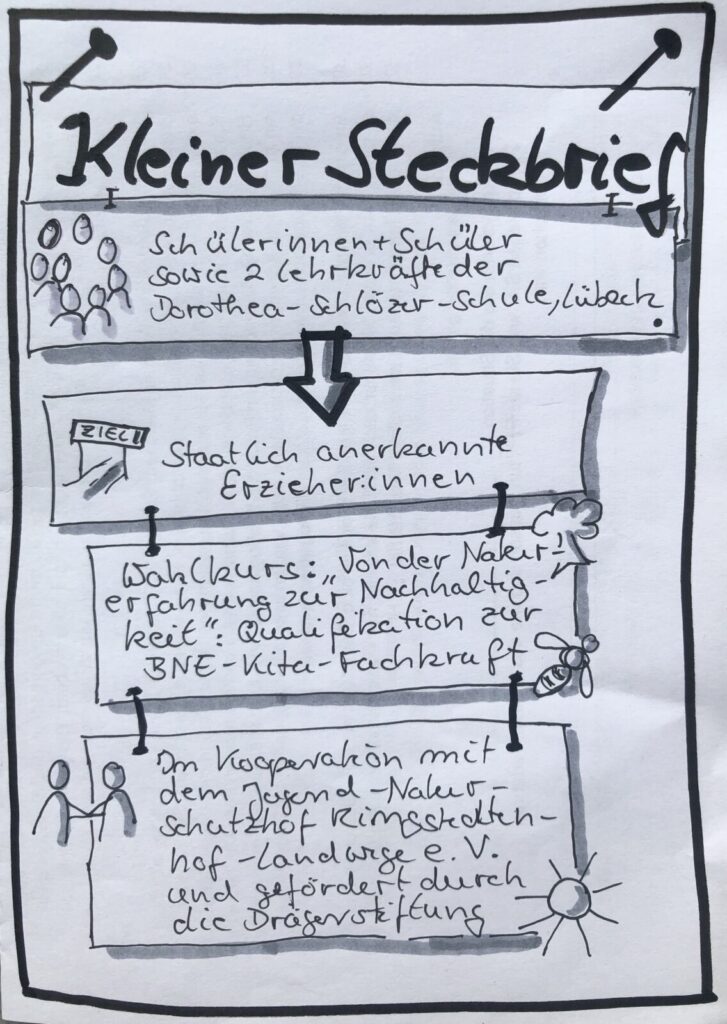 Kleiner Steckbrief
Schülerinnen + Schüler
sowie 2 Lehrkräfte der
Dorothea-Schlözer-Schule, Lübeck.
ZIEL!
Staatlich anerkannte
Erzieher:innen
Wahlkurs: „Von der Natur-
erfahrung zur Nachhaltig-
keit": Qualifikation zur
BNE-Kita-Fachkraft
In Kooperation mit
dem Jugend-Natur-
schutzhof Ringstedten-
hof - Landwege e.V.
und gefördert durch
die Drägerstiftung